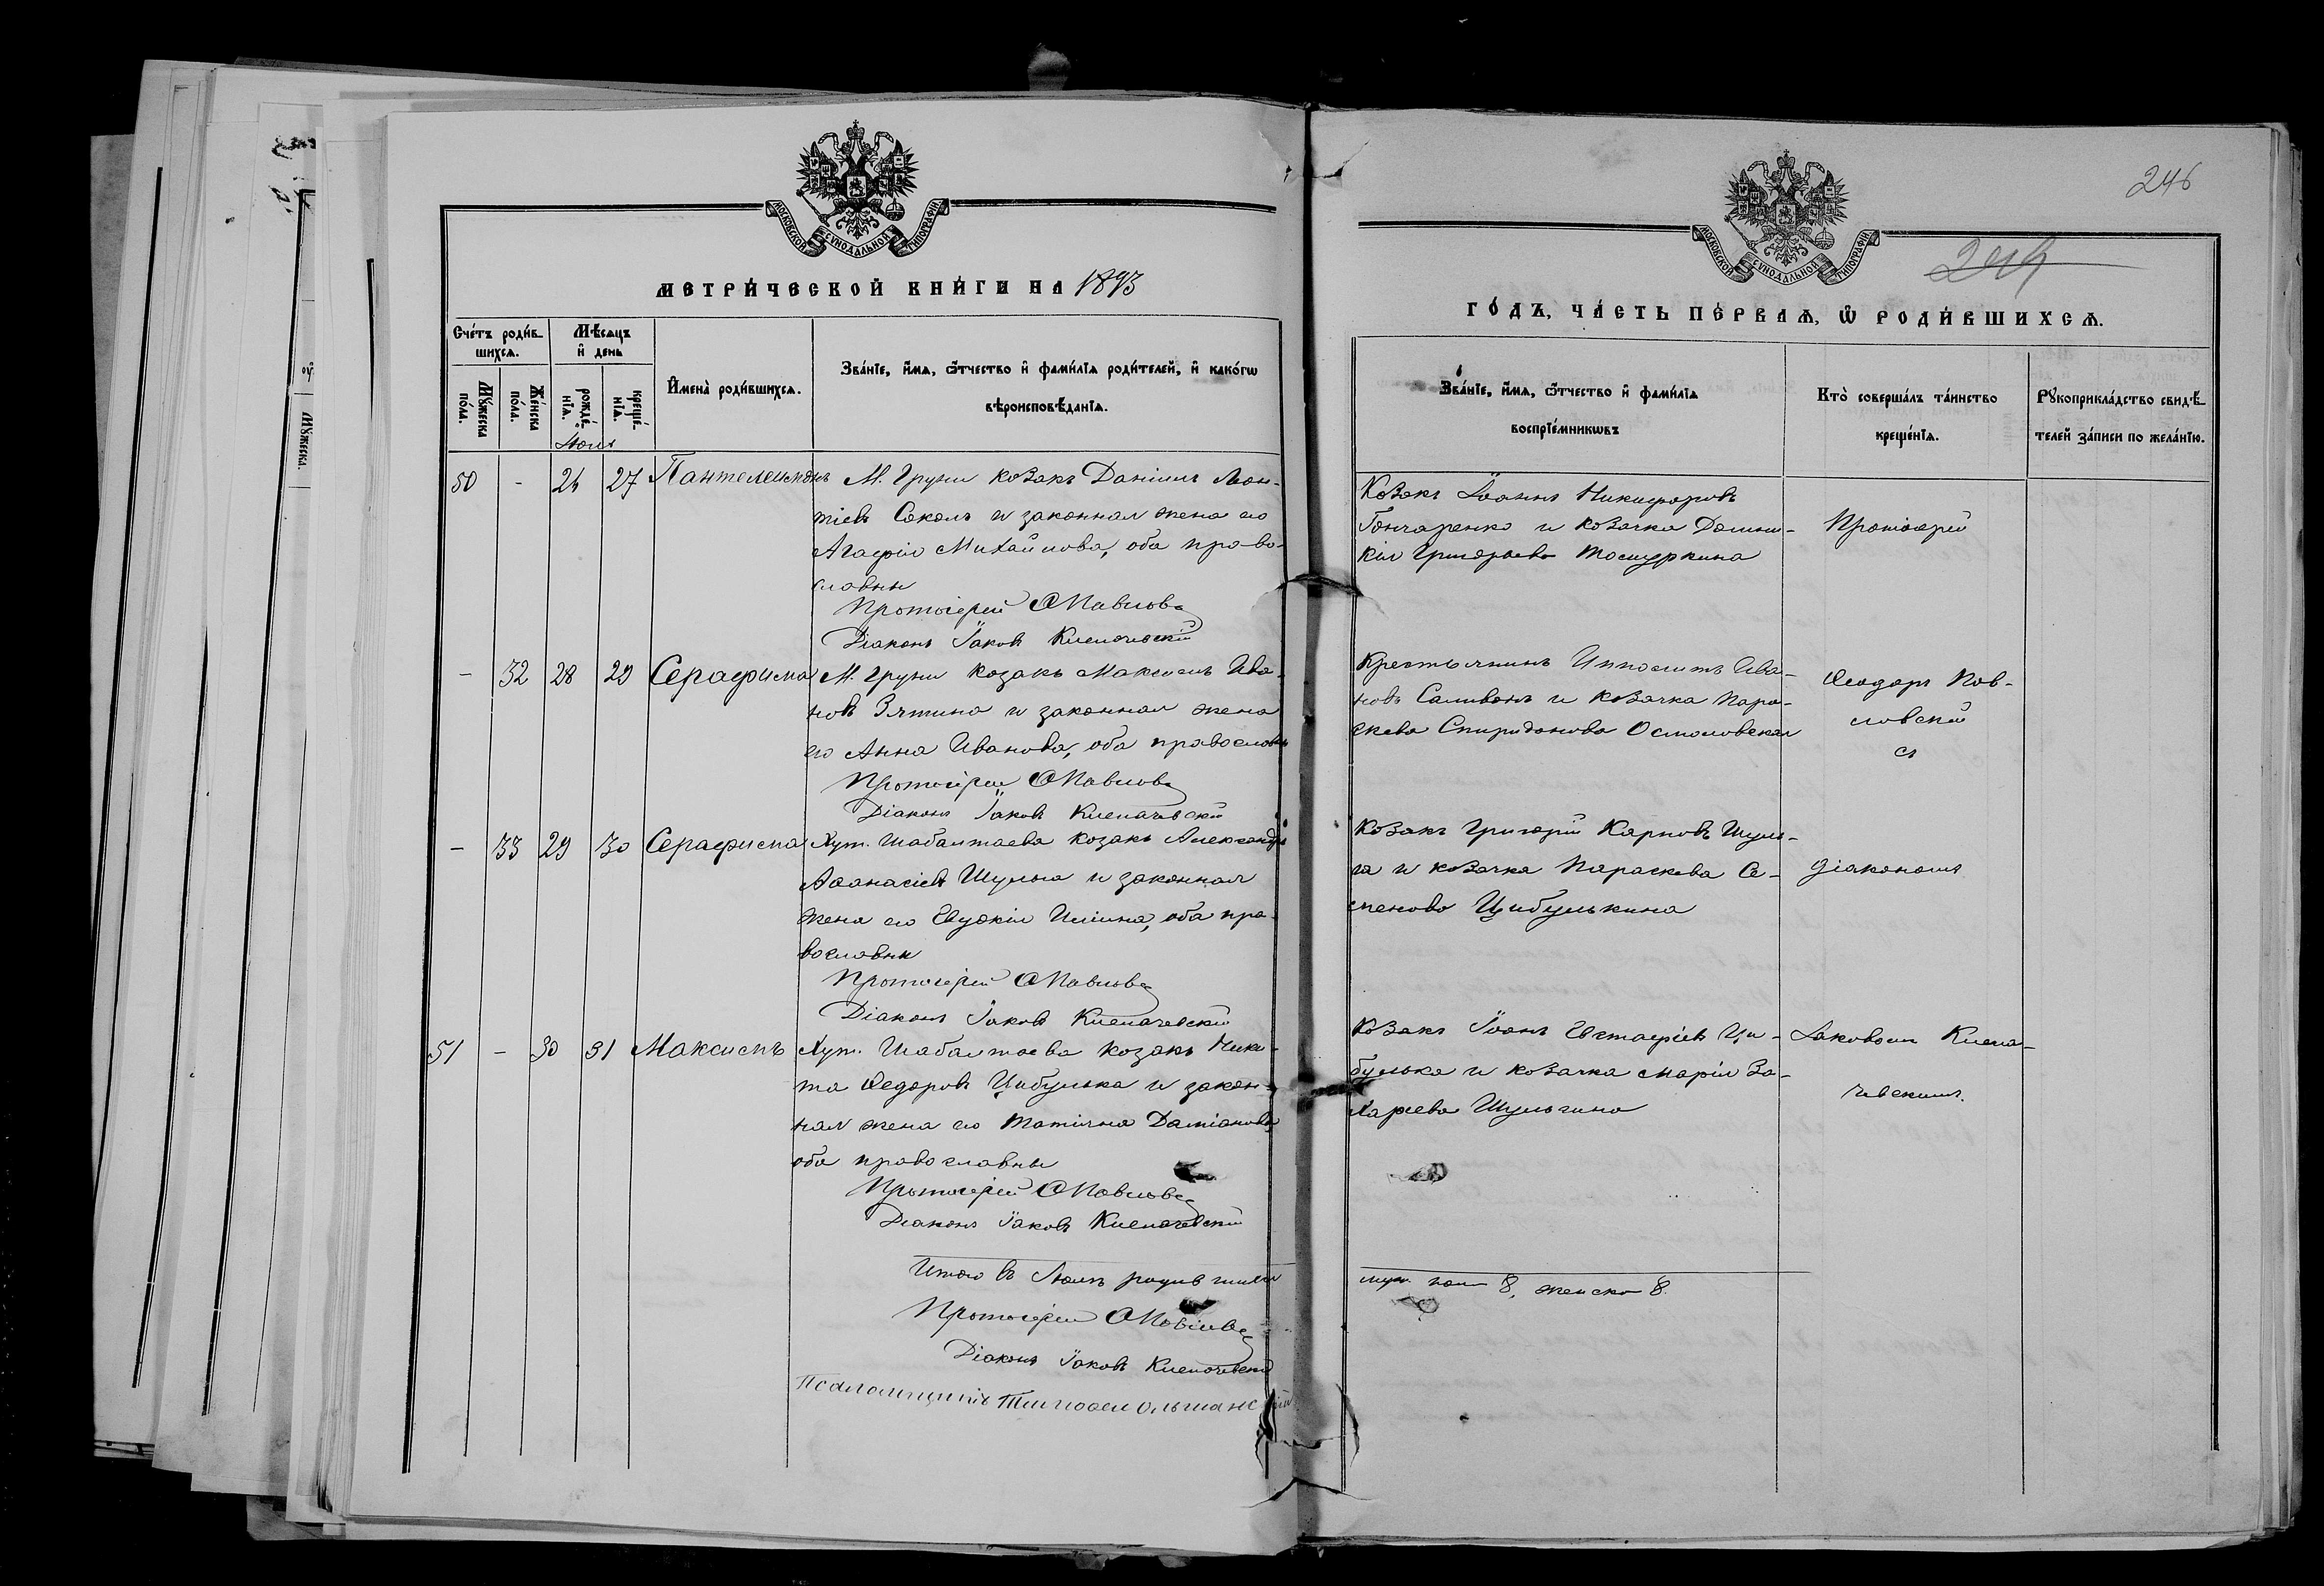 МОСКОВСКОЙ СУНОДАЛЬНОЙ ТИПОГРАФІИ
МЕТРИ́ЧЕСКОЙ КНИ́ГИ НА 1893
Сче́тъ роди́в-
шихсѧ.
Мѣ́сѧцъ
и҆ день
И҆мена̀ роди́вшихсѧ.
Зва́нїе, и҆́мѧ, ѻ҆́тчество и҆ фами́лїѧ роди́телей, и҆ како́гѡ
вѣроисповѣ́данїѧ.
Мꙋ́жеска
по́ла.
Же́нска
по́ла.
рожде́-
нїѧ.
креще́-
нїѧ.
Іюль
50 - 26 27 Пантелеимонъ М. Груни козакъ Даніилъ Леон-
тіевъ Соколъ и законная жена его
Агафія Михайлова, оба право-
славны
Протоіерей Ѳ Павловс
Діаконъ Іаковъ Клепачевскій
- 32 28 29 Серафима М. Груни козакъ Максимъ Ива-
новъ Зятина и законная жена
его Анна Иванова, оба православн
Протоіерей Ѳ Павловс
Діаконъ Іаковъ Клепачевскій
- 33 29 30 Серафима Хут. Шабалтаева козакъ Александръ
Аѳанасіевъ Шульга и законная
жена его Евдокія Иліина, оба пра-
вославны
Протоіерей Ѳ Павловс
Діаконъ Іаковъ Клепачевскій
51 - 30 31 Максимъ Хут. Шабалтаева козакъ Ники-
та Ѳедоровъ Цибулька и закон-
ная жена его Татіана Даміанова
оба православны
Протоіерей Ѳ Павловс
Діаконъ Іаковъ Клепачевскій
Итого въ Іюлѣ родившихся
Протоіерей Ѳ Павловс
Діаконъ Іаковъ Клепачевскій
Псаломщикъ Тимоѳей Ольшанскій
246
МОСКОВСКОЙ СУНОДАЛЬНОЙ ТИПОГРАФІИ
ГО́ДЪ, ЧА́СТЬ ПЕ́РВАѦ, Ѡ҆ РОДИ́ВШИХСѦ.
Зва́нїе, и҆́мѧ, ѻ҆́тчество и҆ фами́лїѧ
воспрїе́мникѡвъ
Кто̀ соверша́лъ та́инство
креще́нїѧ.
Рꙋкоприкла́дство свидѣ́-
телей за́писи по жела́нїю.
Козакъ Іоаннъ Никифоровъ
Гончаренко и козачка Домни-
кія Григорьева
Протоіерей
Крестьянинъ Ипполитъ Ива-
новъ Саливонъ и козачка Пара-
скева Спиридонова Осмоловская
Ѳеодоръ Пав-
ловскій
съ
Козакъ Григорій Карповъ Шуль-
га и козачка Параскева Се-
менова Цибулькина
діакономъ
Козакъ Іоанъ Евстафіевъ Ци-
булька и козачка Марія За-
харіева Шульгина
Іаковомъ Клепа-
чевскимъ.
муж. пола 8, женска 8.